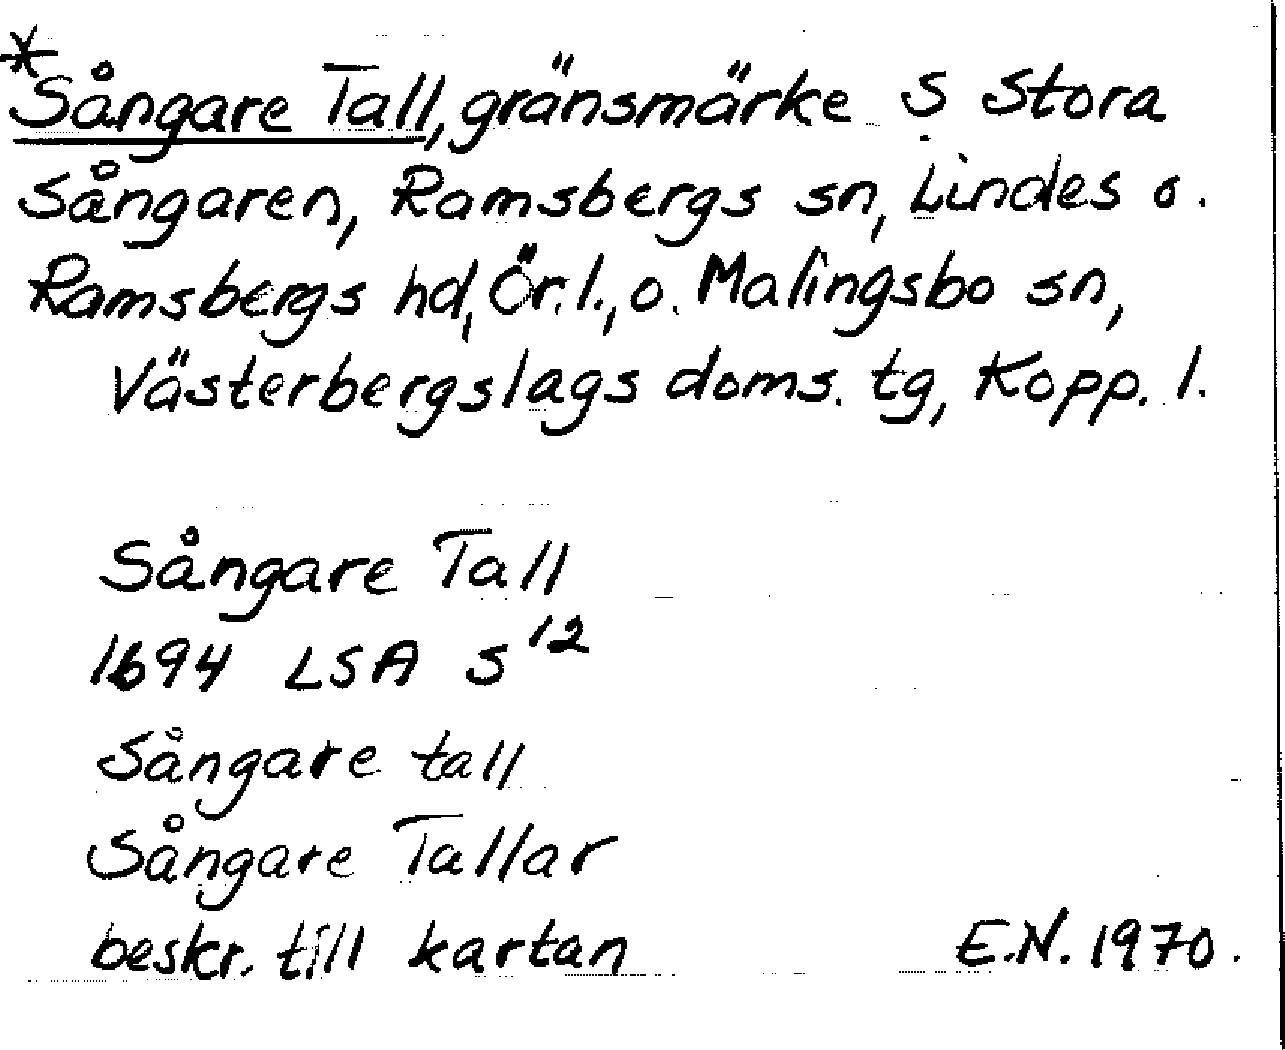 *Sångare Tall, gränsmärke S Stora
Sångaren, Ramsbergs sn, Lindes o.
Ramsbergs hd, Ör. l., o. Malingsbo sn,
Västerbergslags doms. tg, Kopp. l.
Sångare Tall
1694 LSA S¹²
Sångare tall
Sångare Tallar
beskr. till kartan E.N. 1970.